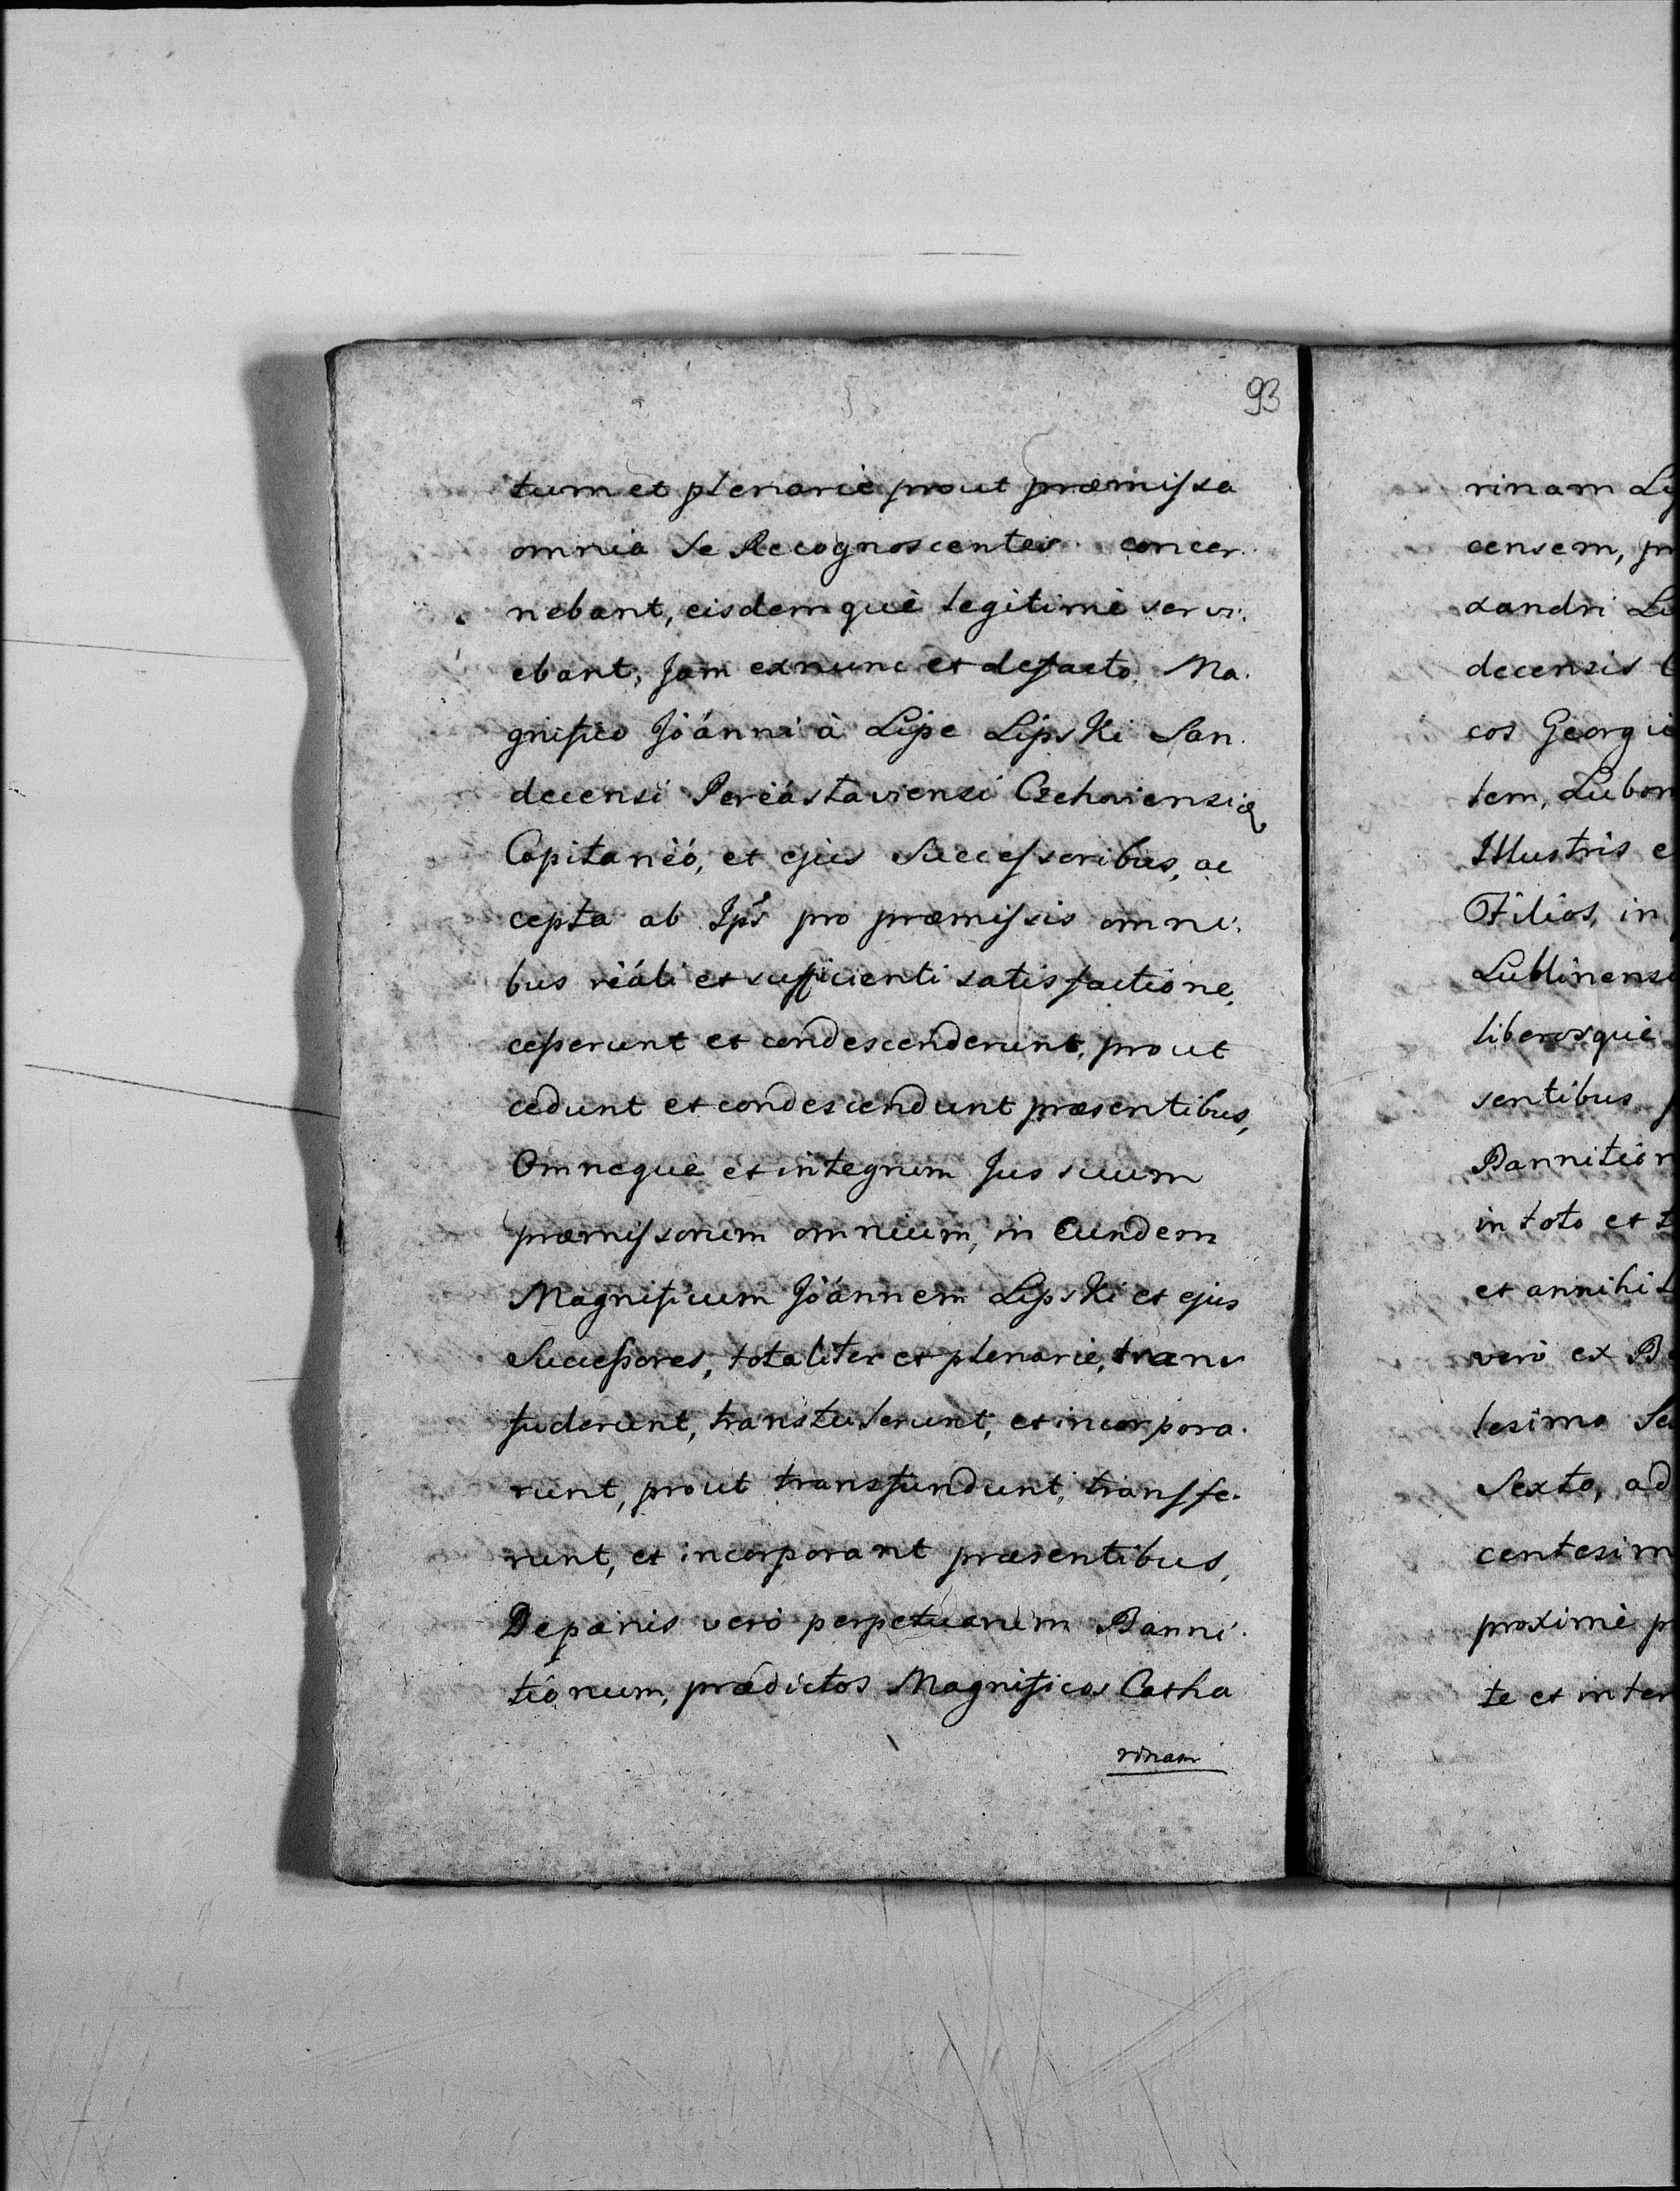 93
tum et plenarie prout præmissa
omnia se Recognoscentes concer-
nebant, eisdemquè legitimè servi-
ebant, Jam exnunc et defacto, Ma-
gnifico Joánni à Lipe Lipski San-
decensi Pereástaviensi Czchoviensiq
Capitanèó, et ejus Successoribus, ac
cepta ab Ips pro præmissis omni-
bus reáli et sufficienti satisfactióne,
cesserunt et condescenderunt, prout
cedunt et condescendunt præsentibus,
Omnequè et integrum Jus suum
præmissorum omnium, in Eundem
Magnificum Joánnem Lipski et ejus
Successores, totaliter et plenarie, trans
fuderunt, transtulerunt, et incorpora-
runt, prout transfundunt, transfe-
runt, et incorporant præsentibus,
De pænis verò perpetuarum Banni-
tiónum, prædictos Magnificos Catha
rinam
rinam Ly
censem, pr
xandri Lu
decensis
cos Georgi
tem, Lubom
Illustris e
Filios, in
Lublinensi
liberosquè
sentibus
Bannitión
in toto et
et annihil
verò ex B
tesimo Se
Sexto, ad
centesim
proximè p
te et inter